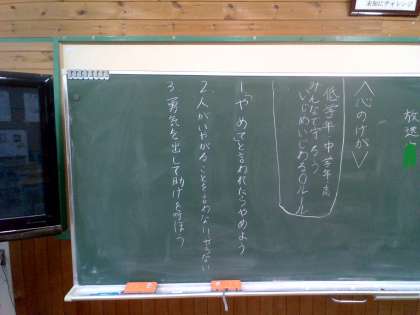 未知にチャレンジ
放送
〈心のけが〉
低学年 中学年
みんなで守ろう
いじめいじわる0ルール
1.「やめて」と言われたらやめよう
2.人がいやがることを言わない・やらない
3.勇気を出して助けを呼ぼう